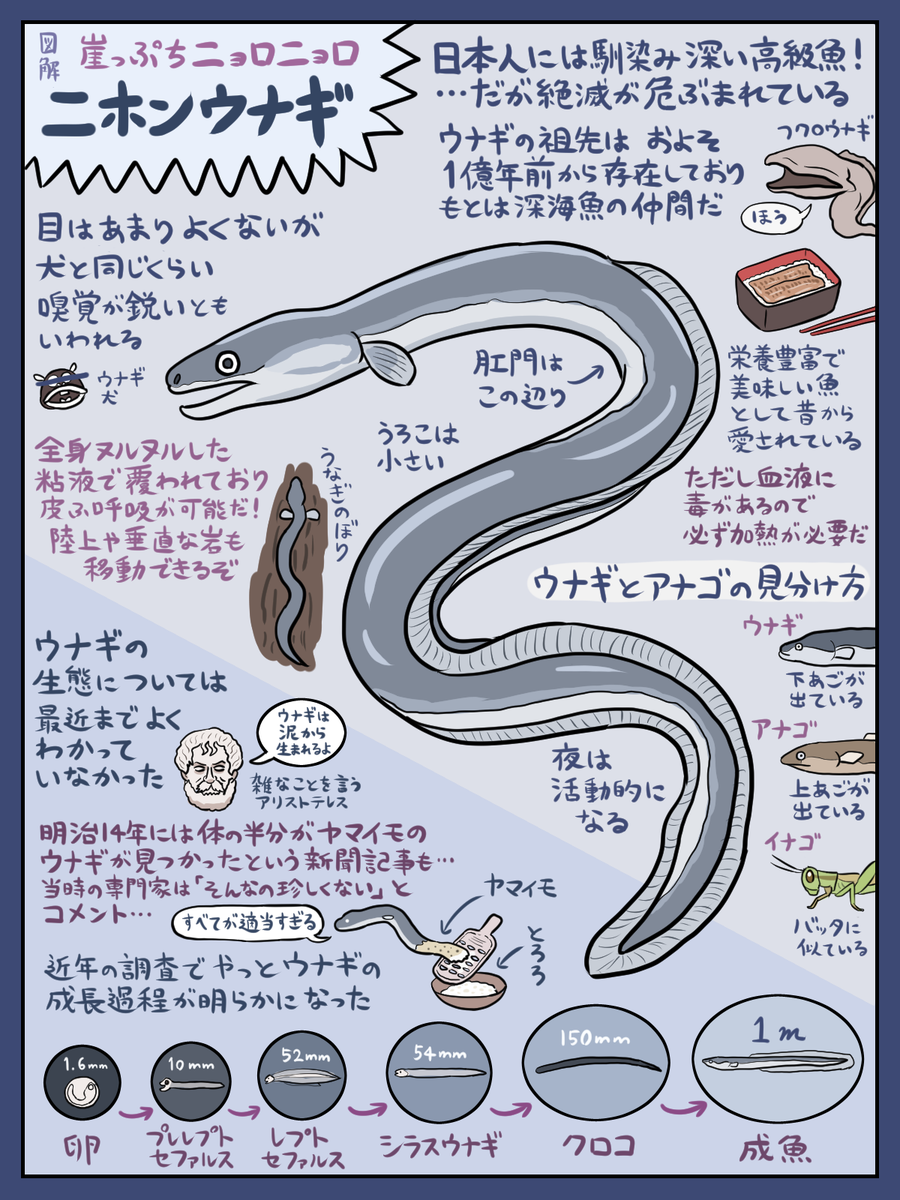 図解
崖っぷちニョロニョロ
ニホンウナギ
日本人には馴染み深い高級魚！
…だが絶滅が危ぶまれている
ウナギの祖先は およそ
1億年前から存在しており
もとは深海魚の仲間だ
フクロウナギ
ほう
目はあまりよくないが
犬と同じくらい
嗅覚が鋭いとも
いわれる
ウナギ
犬
肛門は
この辺り
栄養豊富で
美味しい魚
として昔から
愛されている
ただし血液に
毒があるので
必ず加熱が必要だ
うろこは
小さい
全身ヌルヌルした
粘液で覆われており
皮ふ呼吸が可能だ！
陸上や垂直な岩も
移動できるぞ
うなぎのぼり
ウナギとアナゴの見分け方
ウナギ
下あごが
出ている
アナゴ
上あごが
出ている
イナゴ
バッタに
似ている
ウナギの
生態については
最近までよく
わかって
いなかった
ウナギは
泥から
生まれるよ
雑なことを言う
アリストテレス
夜は
活動的に
なる
明治14年には体の半分がヤマイモの
ウナギが見つかったという新聞記事も…
当時の専門家は「そんなの珍しくない」と
コメント…
すべてが適当すぎる
ヤマイモ
とろろ
近年の調査でやっとウナギの
成長過程が明らかになった
1.6mm
10mm
52mm
54mm
150mm
1m
卵
プレレプト
セファルス
レプト
セファルス
シラスウナギ
クロコ
成魚